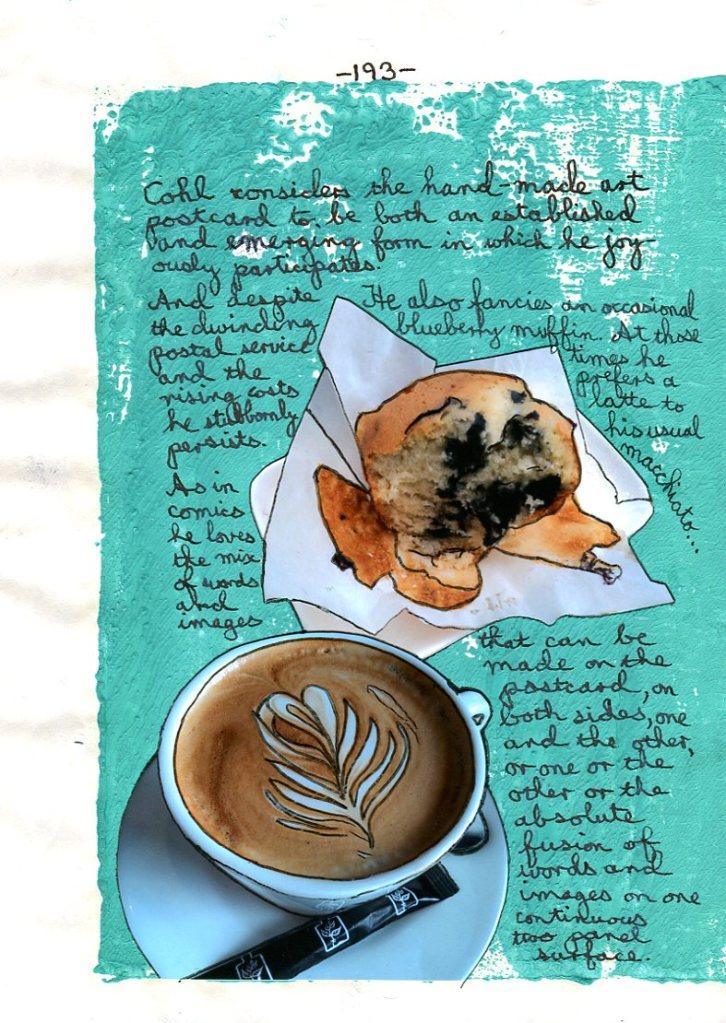 -193-
Cohl considers the hand-made art
postcard to be both an established
and emerging form in which he joy-
ously participates.
And despite
the dwindling
postal service
and the
rising costs
he stubbornly
persists.
He also fancies an occasional
blueberry muffin. At those
times he
prefers a
latte to
his usual
macchiato...
As in
comics
he loves
the mix
of words
and
images
that can be
made on the
postcard, on
both sides, one
and the other,
or one or the
other or the
absolute
fusion of
words and
images on one
continuous
two panel
surface.